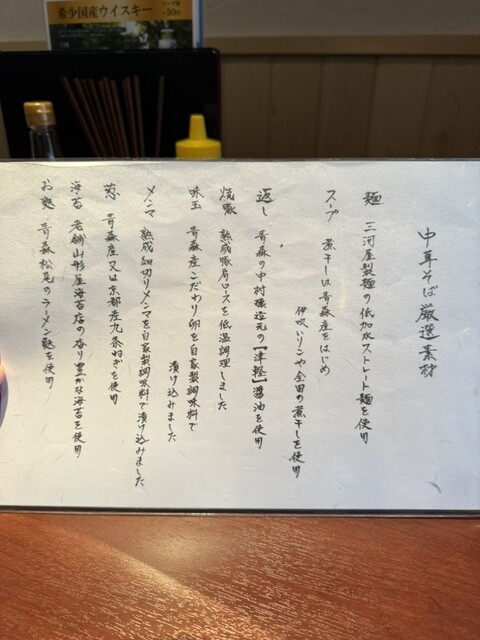 希少国産ウイスキー
中華そば厳選素材
麺 三河屋製麺の低加水ストレート麺を使用
スープ 煮干しは青森産をはじめ
伊吹いりこや全国の煮干しを使用
返し 青森の中村醸造元の【津軽】醤油を使用
焼豚 熟成豚肩ロースを低温調理しました
味玉 青森産こだわり卵を自家製調味料で
漬け込みました
メンマ 熟成細切りメンマを自家製調味料で漬け込みました
葱 青森産又は京都産九条ねぎを使用
海苔 老舗山形屋海苔店の香り豊かな海苔を使用
お麩 青森松尾のラーメン麩を使用